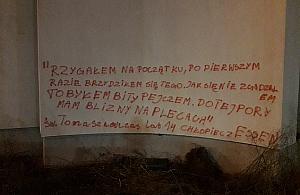 "RZYGAŁEM NA POCZĄTKU, PO PIERWSZYM
RAZIE BRZYDZIŁEM SIĘ TEGO. JAK SIĘ NIE ZGADZAŁ
EM
TO BYŁEM BITY PEJCZEM. DO TEJ PORY
MAM BLIZNY NA PLECACH"
Tomasz lat 14 CHŁOPIEC Z ESSEN